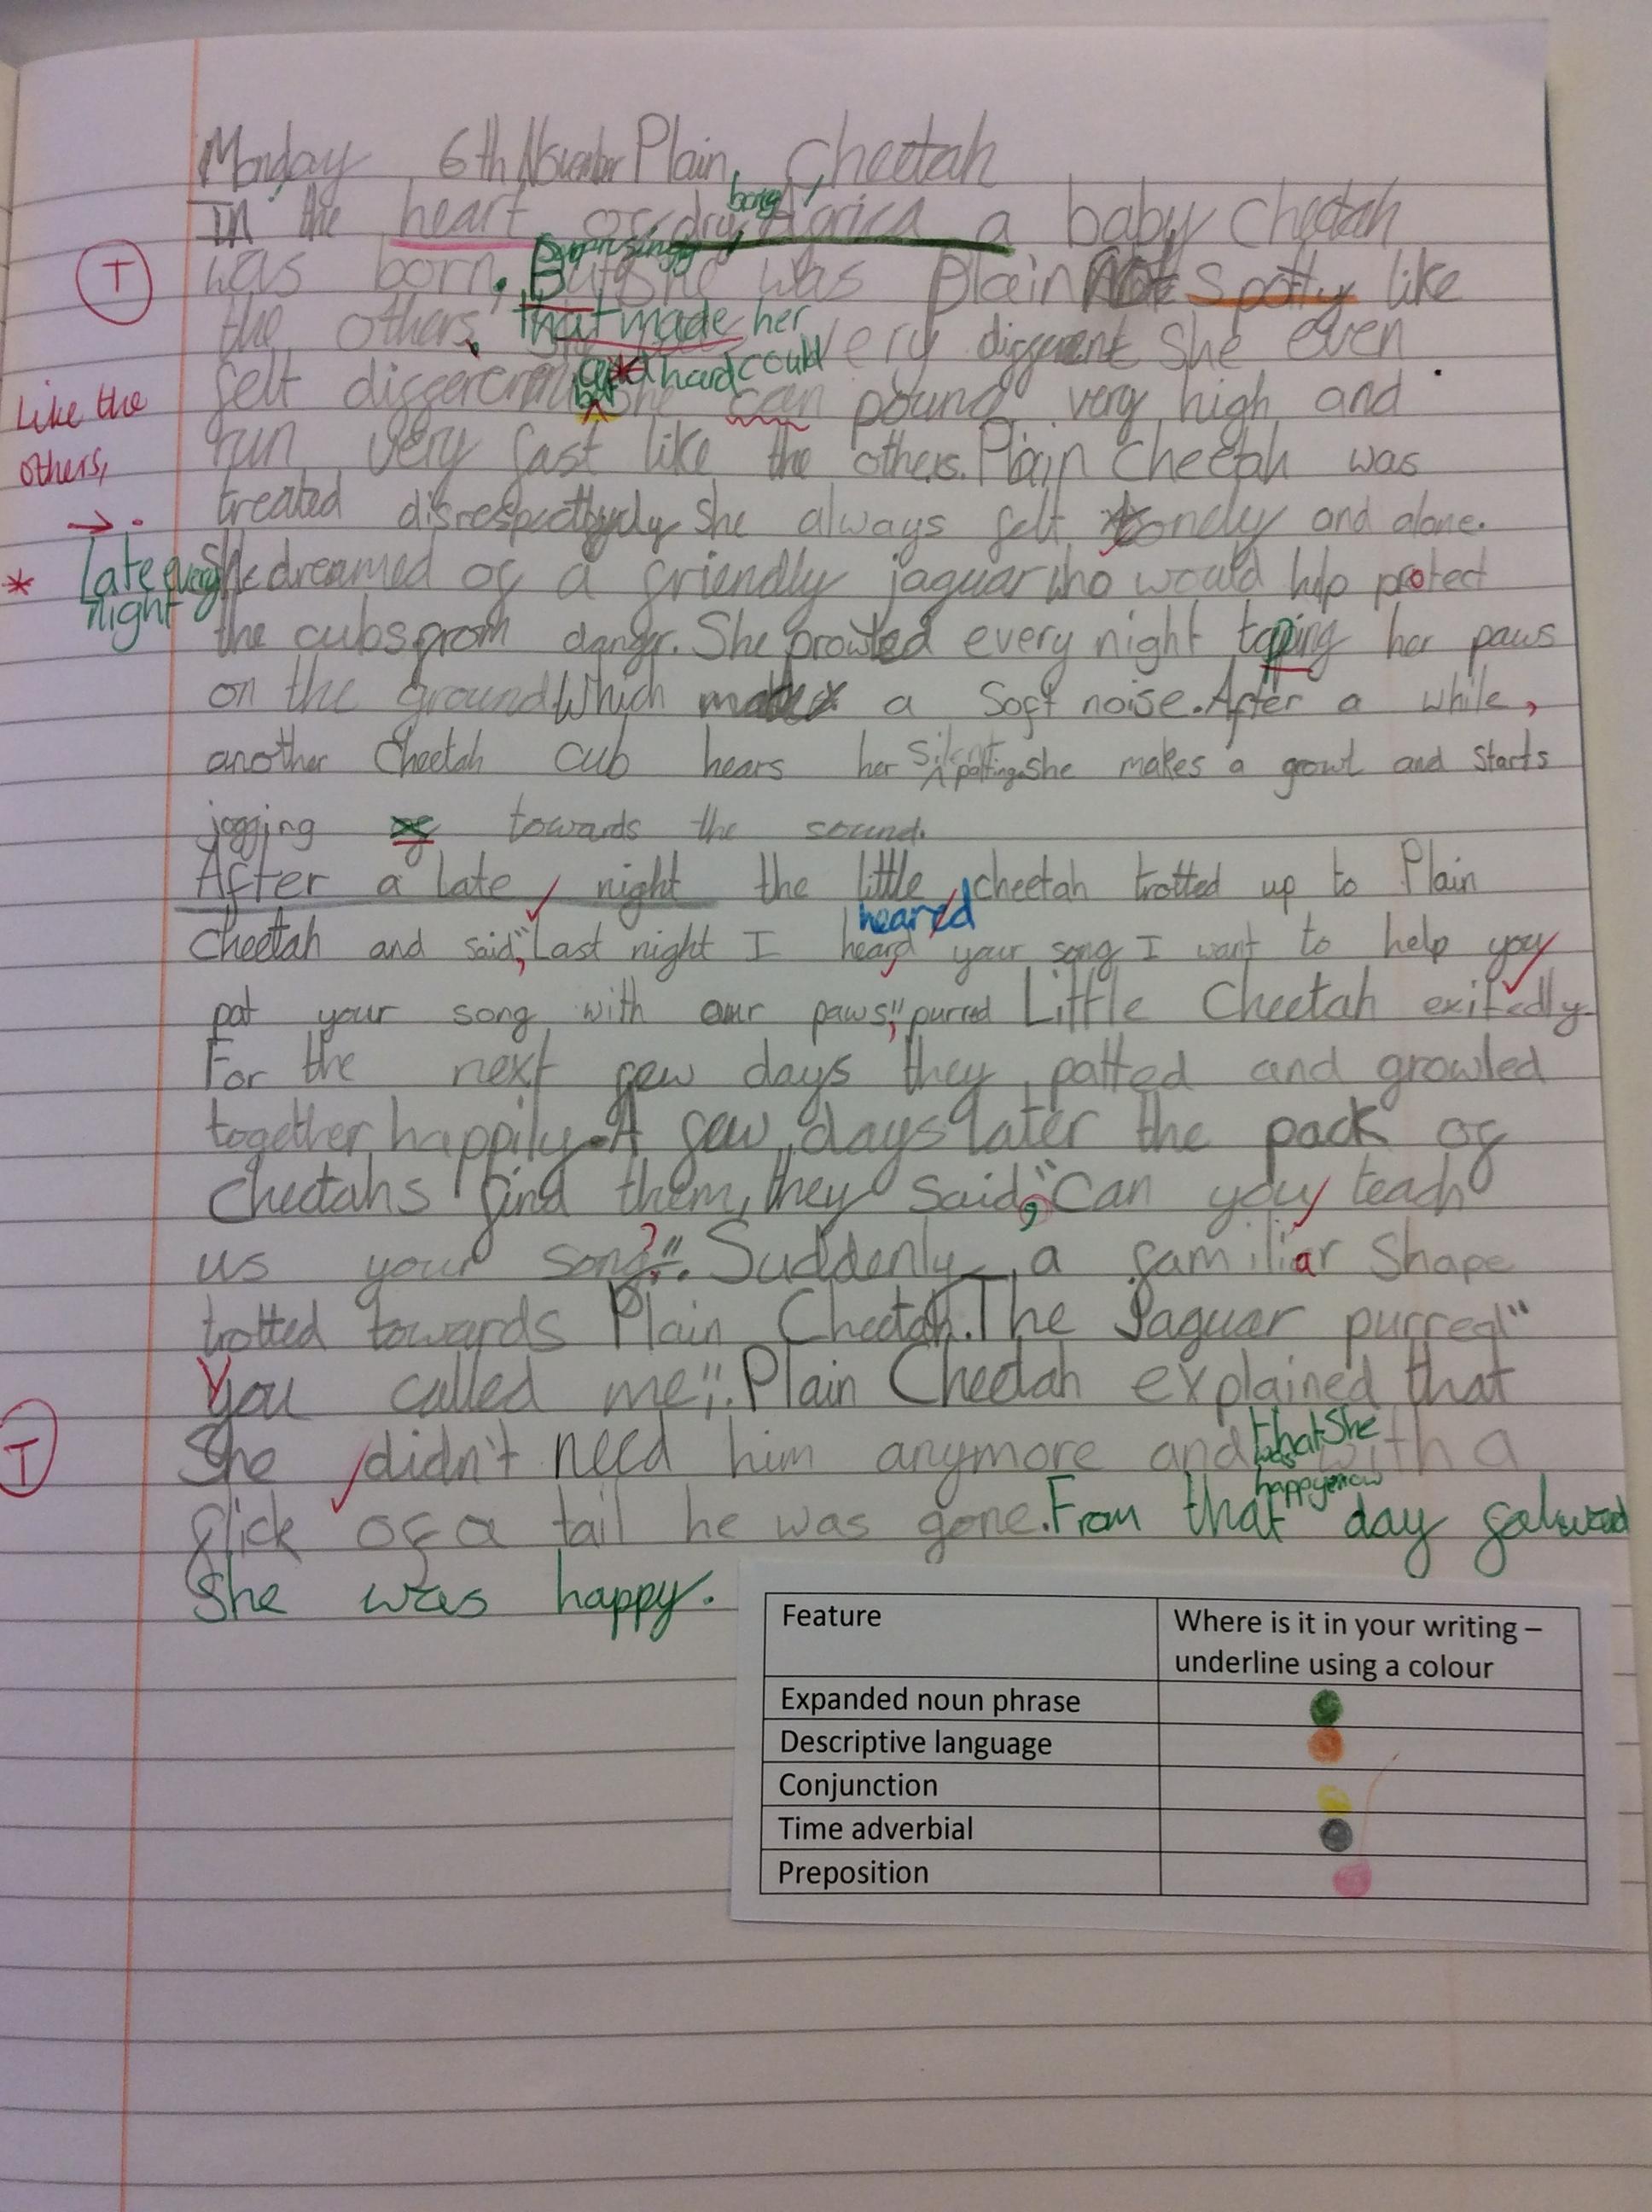 Monday 6th November Plain Cheetah
In the heart of dry Africa a baby Cheetah
T
was born. But she was plain Not Spotty like
that made her
the others. very different She even
and hard could
but
Like the
felt different she can pound very high and
others,
run very fast like the others. Plain Cheetah was
treated disrespectfuly She always felt lonely and alone.
Late every night
She dreamed of a friendly jaguar who would help protect
the cubs from danger. She prowled every night taping her paws
on the ground Which makes a Soft noise. After a while,
another Cheetah cub hears her Silent patting. She makes a growl and starts
jogging towards the sound.
After a late night the little cheetah trotted up to Plain
heared
Cheetah and said, "Last night I heard your song I want to help you
pat your song with our paws," purred Little Cheetah exitedly.
For the next few days they patted and growled
together happily. A few days later the pack of
Cheetahs find them, they said, "Can you teach
us your song?". Suddenly, a familiar Shape
trotted towards Plain Cheetah. The Jaguar purred "
You called me,". Plain Cheetah explained that
that she was happy now
T
She didn't need him anymore and with a
flick of a tail he was gone. From that day
She was happy.
Feature Where is it in your writing –
underline using a colour
Expanded noun phrase
Descriptive language
Conjunction
Time adverbial
Preposition